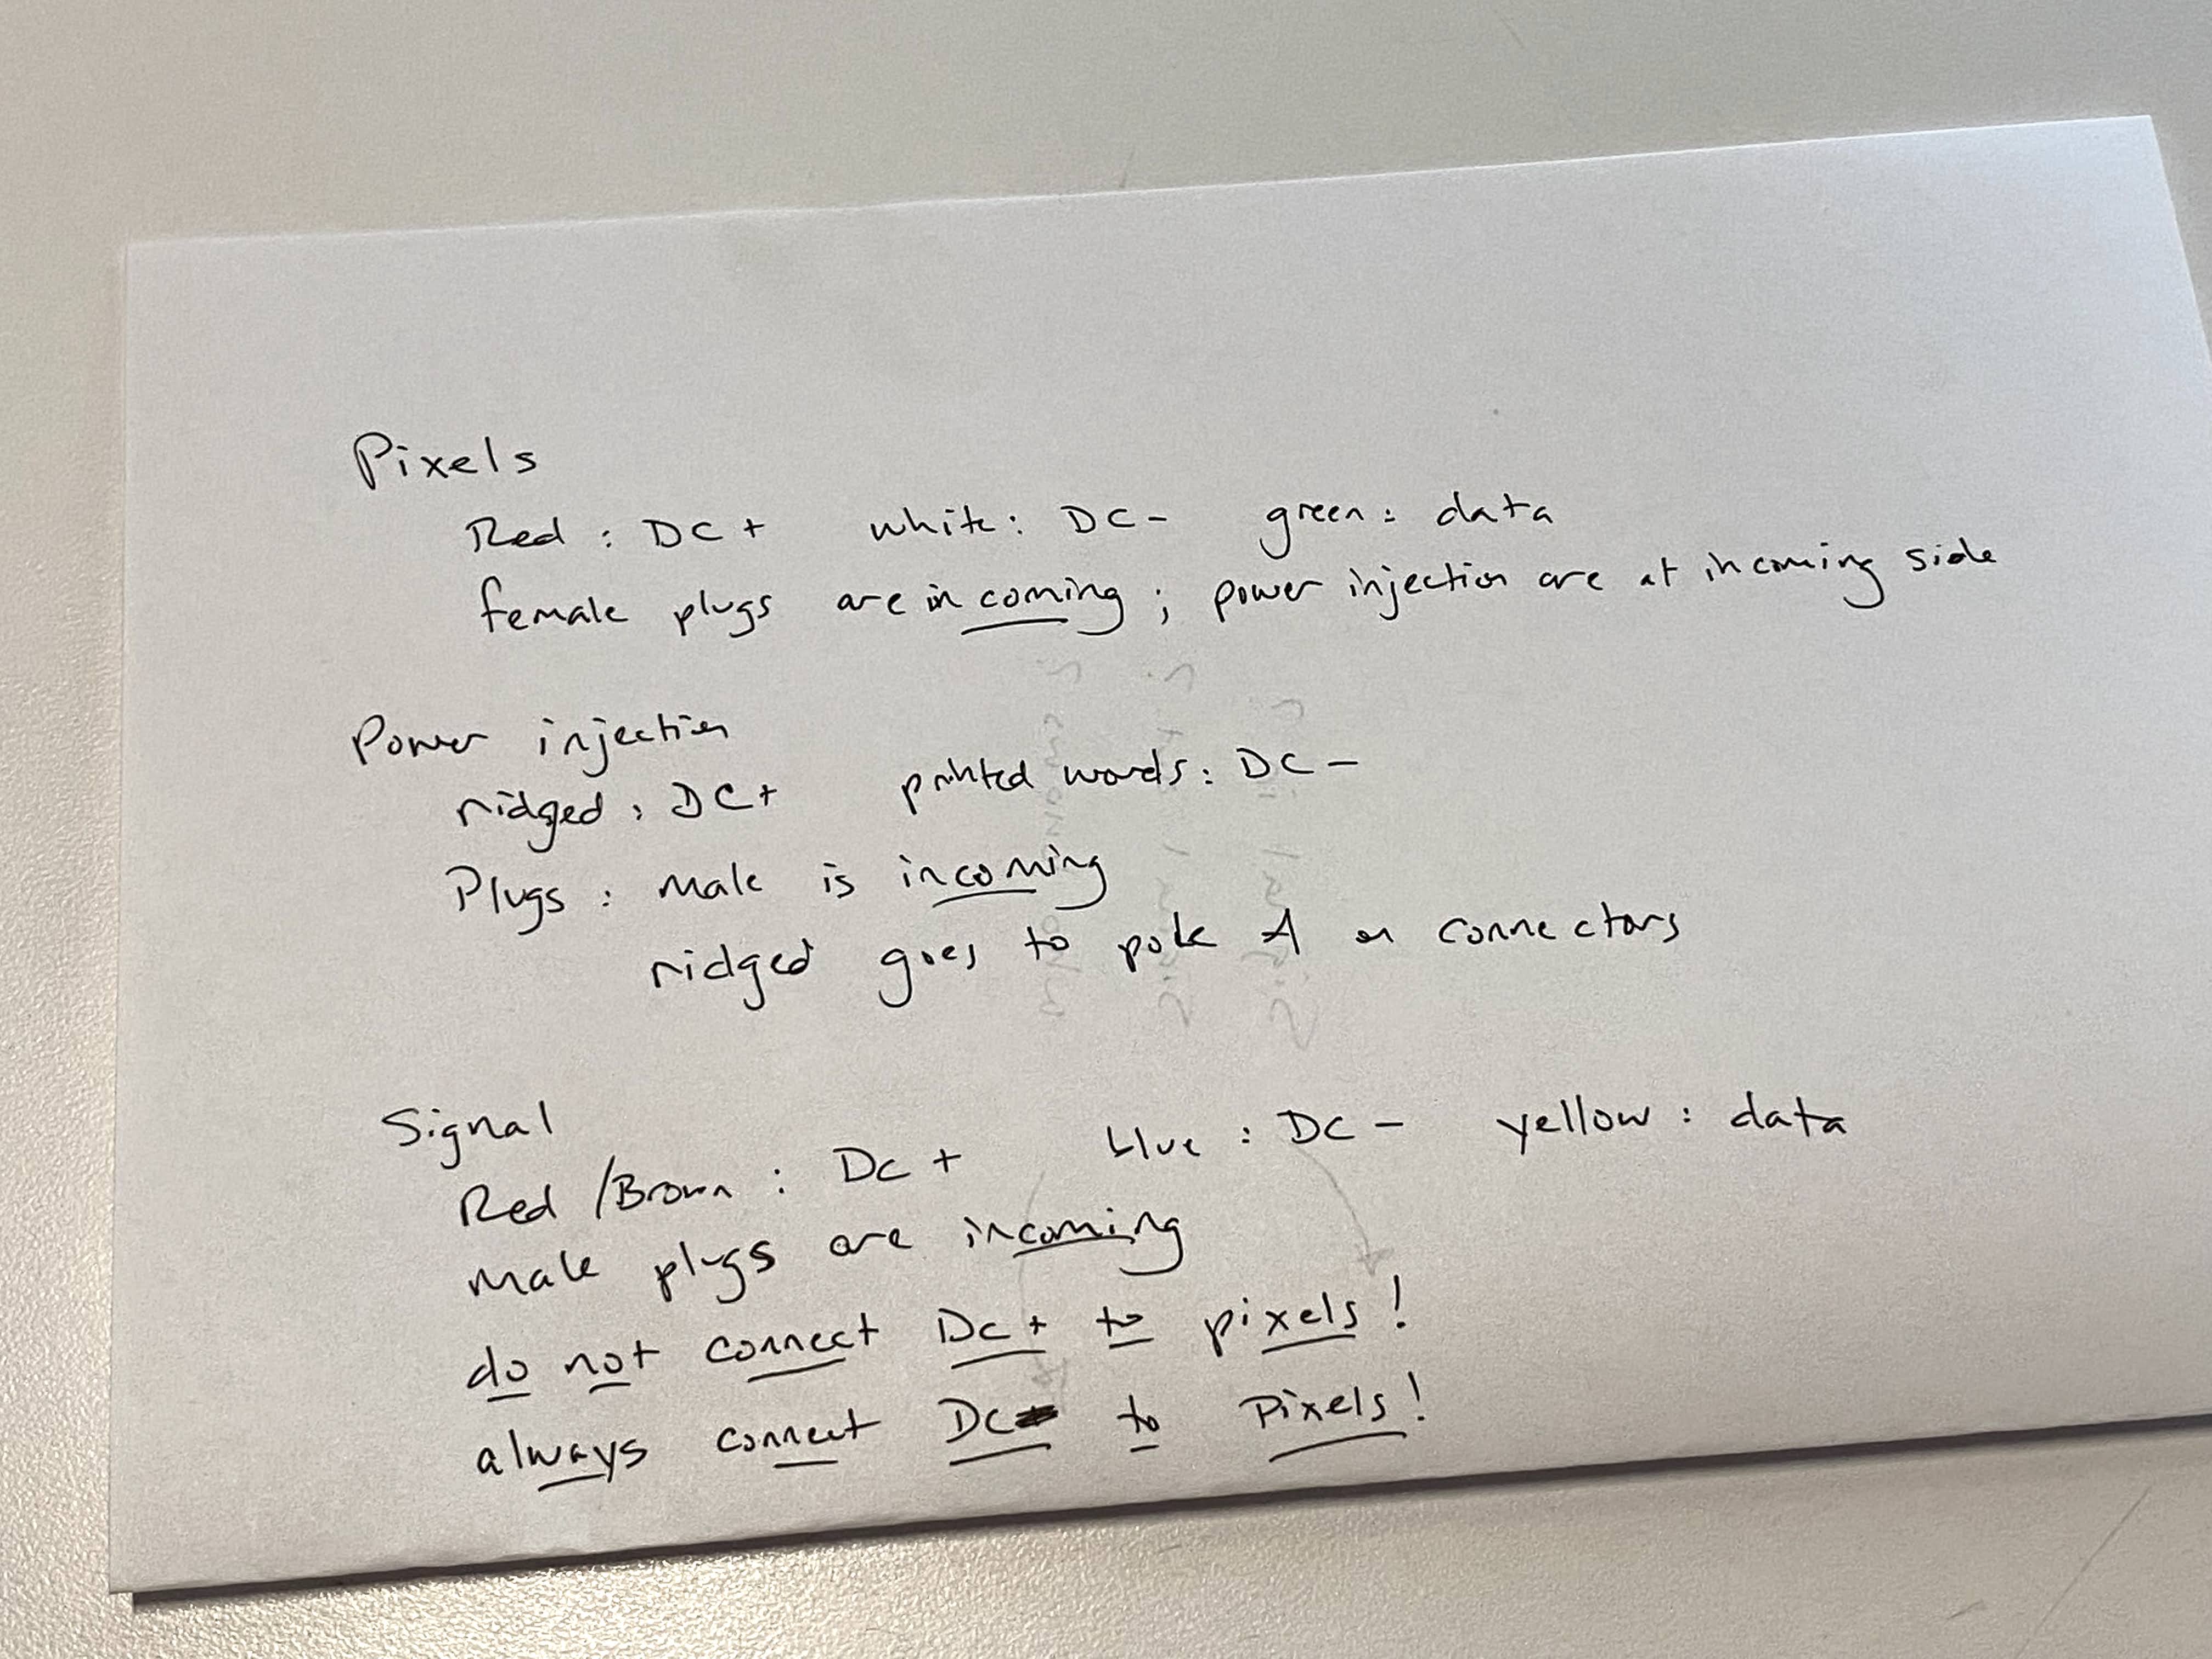 Pixels
Red : DC + white : DC - green : data
female plugs are incoming ; power injection are at incoming side
Power injection
ridged : DC+ printed words : DC -
Plugs : male is incoming
ridged goes to pole A on connectors
Signal
Red /Brown : DC + blue : DC - yellow : data
male plugs are incoming
do not connect DC+ to pixels!
always connect DC- to Pixels!